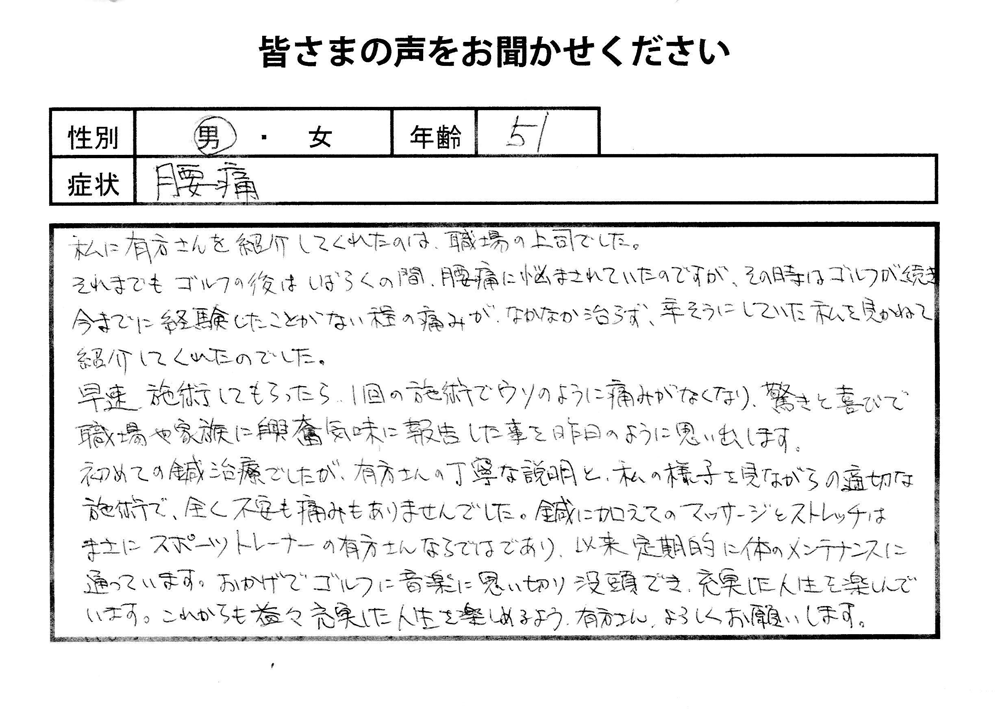 皆さまの声をお聞かせください
性別 男 ・ 女 年齢 51
症状 腰痛
私に有方さんを紹介してくれたのは、職場の上司でした。
それまでもゴルフの後はしばらくの間、腰痛に悩まされていたのですが、その時はゴルフが続き
今までに経験したことがない程の痛みが、なかなか治らず、辛そうにしていた私を見かねて
紹介してくれたのでした。
早速、施術してもらったら、1回の施術でウソのように痛みがなくなり、驚きと喜びで
職場や家族に興奮気味に報告した事を昨日のように思い出します。
初めての鍼治療でしたが、有方さんの丁寧な説明と、私の様子を見ながらの適切な
施術で、全く不安も痛みもありませんでした。鍼に加えてのマッサージとストレッチは
まさにスポーツトレーナーの有方さんならではであり、以来定期的に体のメンテナンスに
通っています。おかげでゴルフに音楽に思い切り没頭でき、充実した人生を楽しんで
います。これからも益々充実した人生を楽しめるよう、有方さん、よろしくお願いします。